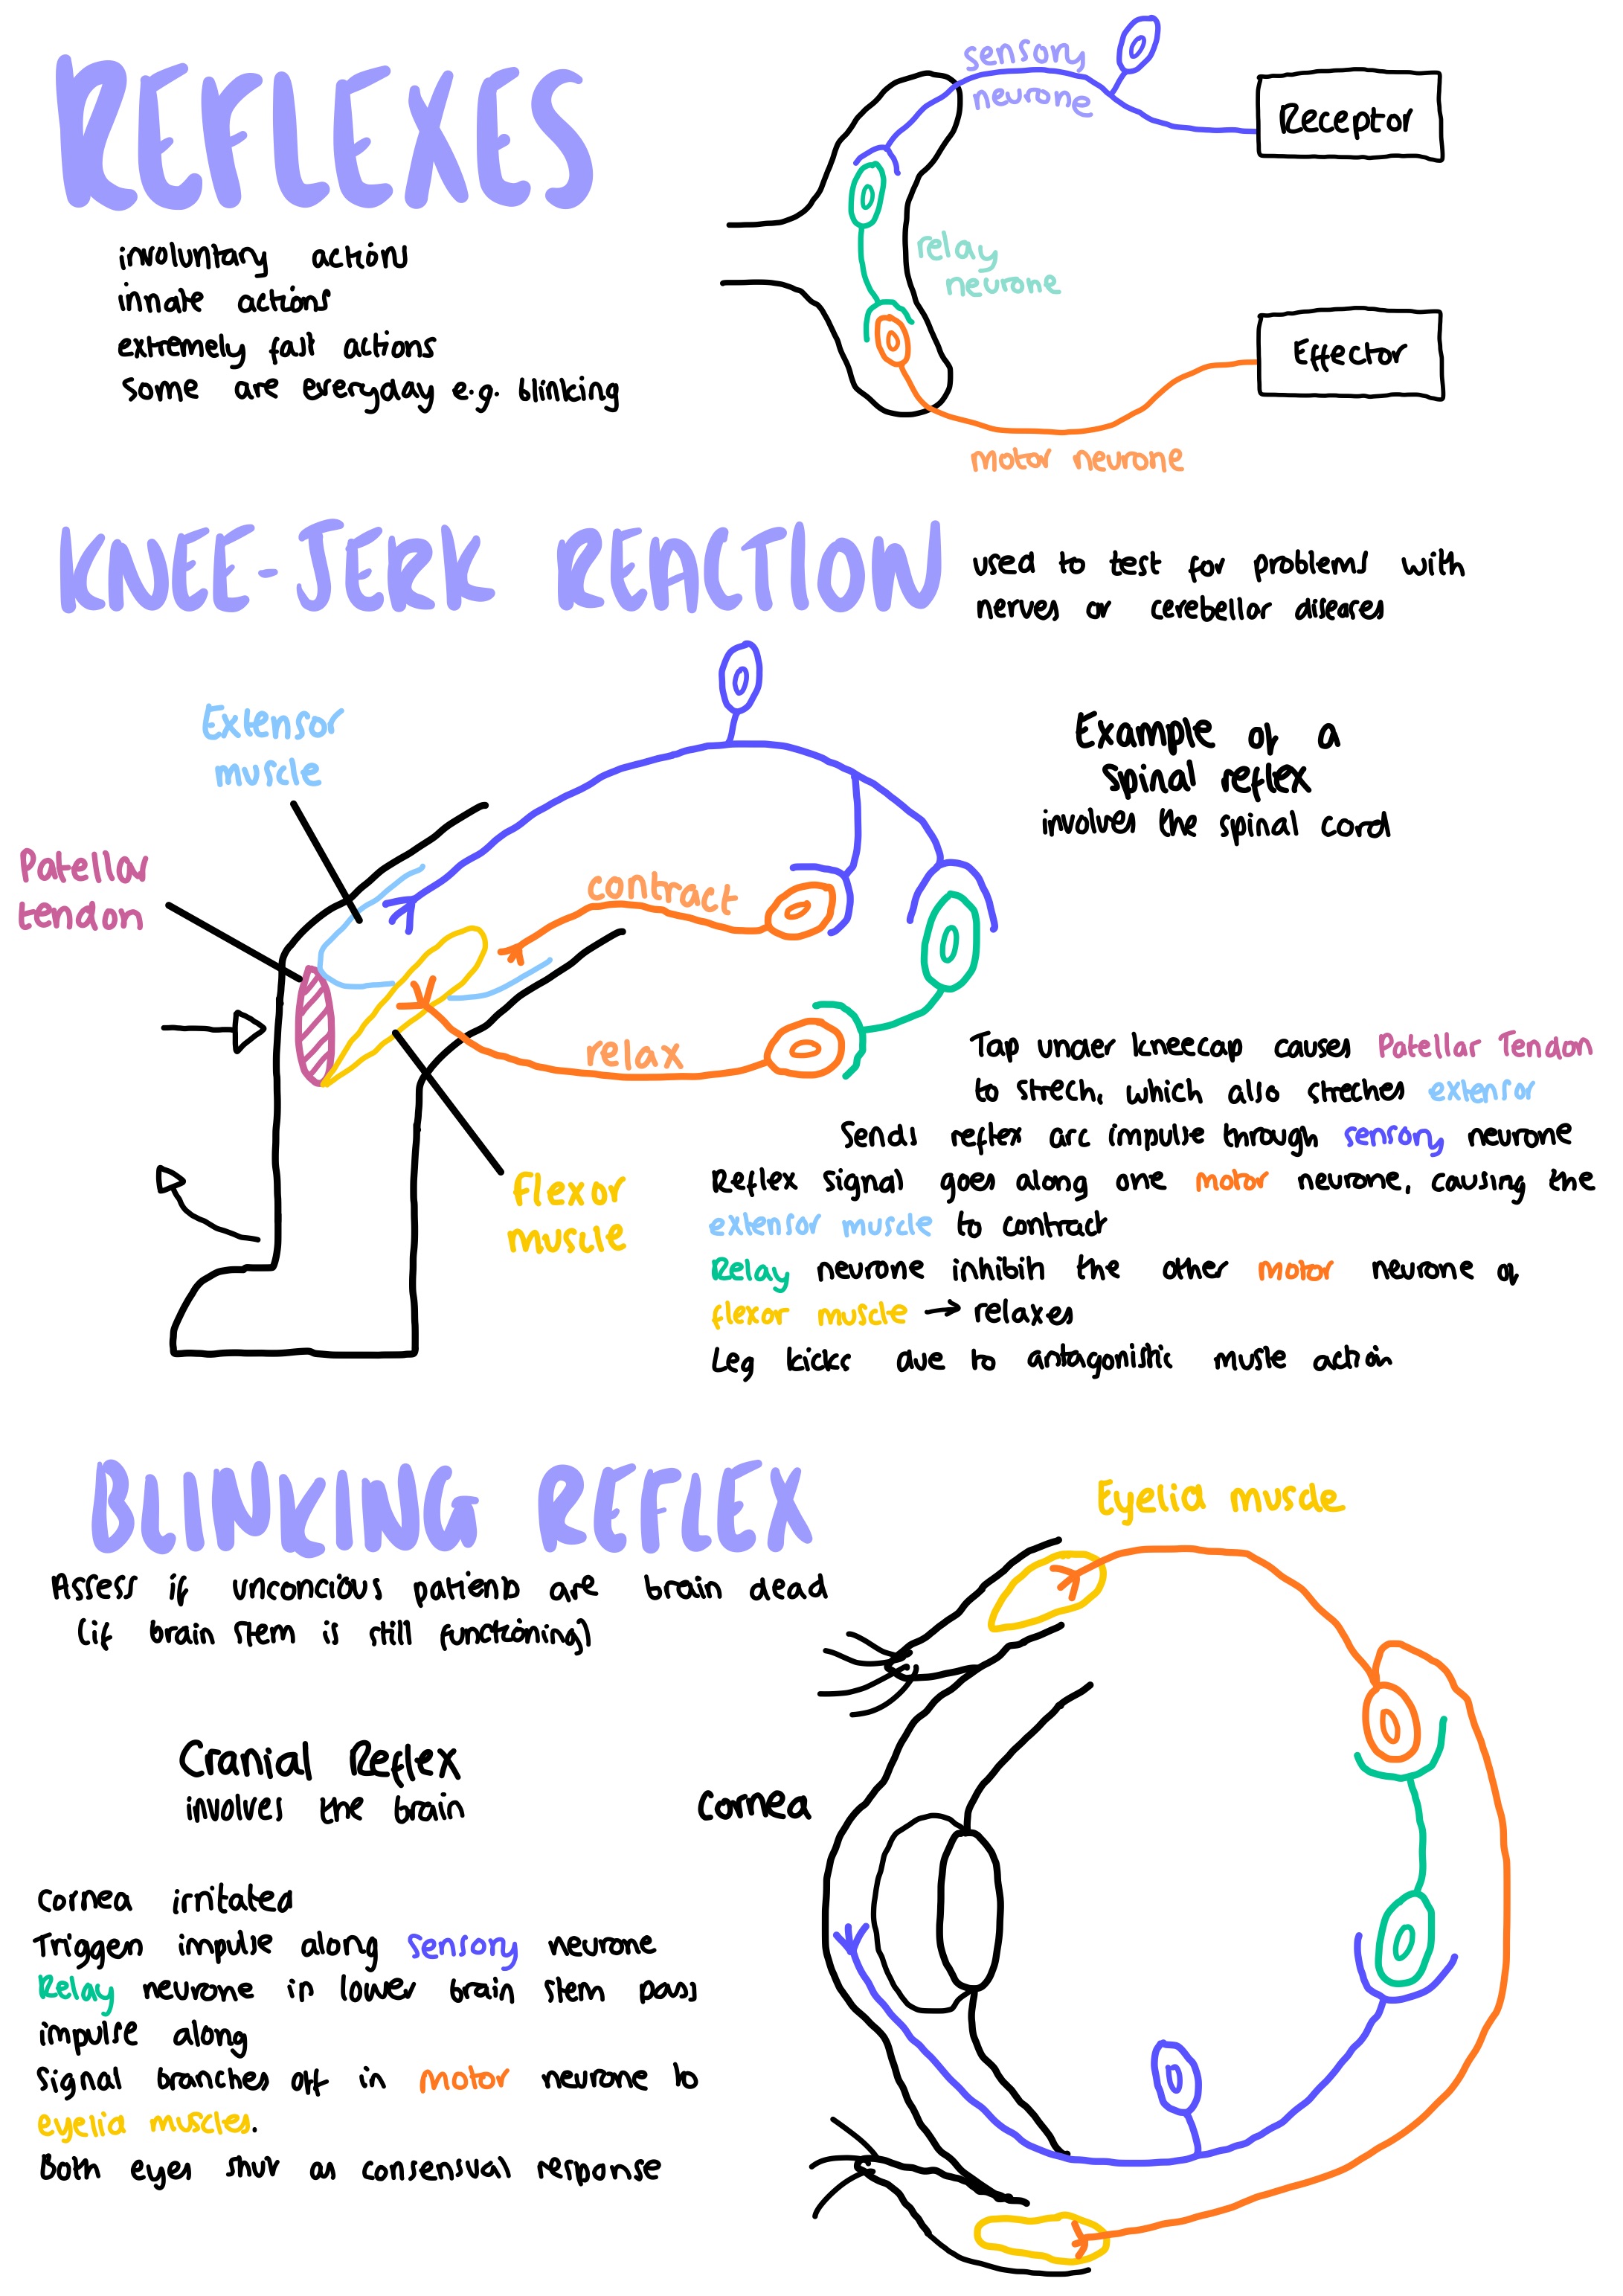 REFLEXES
involuntary actions
innate actions
extremely fast actions
some are everyday e.g. blinking
sensory
neurone
Receptor
relay
neurone
Effector
motor neurone
KNEE-JERK REACTION
used to test for problems with
nerves or cerebellar diseases
Extensor
muscle
Patellar
tendon
contract
relax
Flexor
muscle
Example of a
spinal reflex
involves the spinal cord
Tap under kneecap causes Patellar Tendon
to strech, which also streches extensor
Sends reflex arc impulse through sensory neurone
Reflex signal goes along one motor neurone, causing the
extensor muscle to contract
Relay neurone inhibits the other motor neurone of
flexor muscle → relaxes
Leg kicks due to antagonistic muscle action
BLINKING REFLEX
Assess if unconcious patients are brain dead
(if brain stem is still functioning)
Eyelid muscle
Cranial Reflex
involves the brain
cornea
Cornea irritated
Triggers impulse along sensory neurone
Relay neurone in lower brain stem pass
impulse along
Signal branches off in motor neurone to
eyelid muscles.
Both eyes shut as consensual response